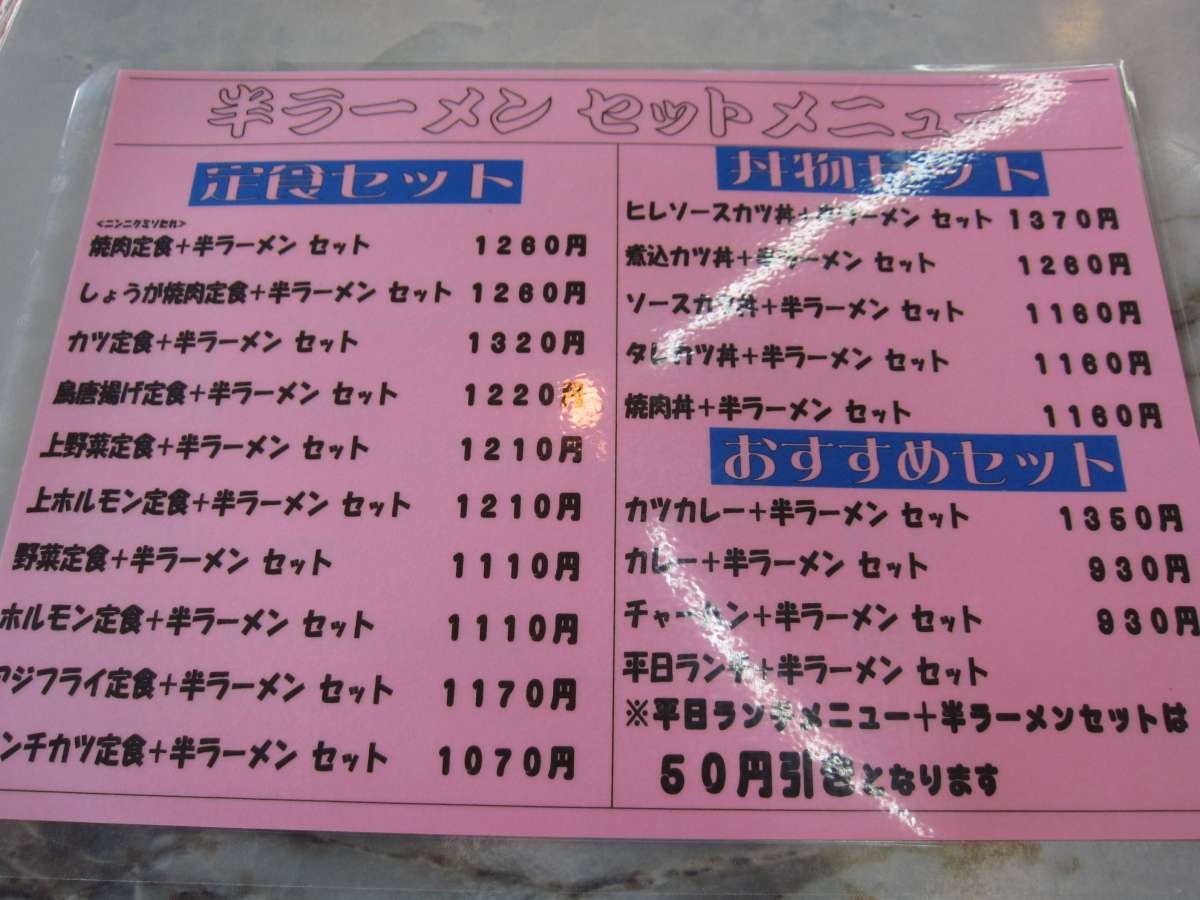 半ラーメン セットメニュー
定食セット
<ニンニクミソセれ>
焼肉定食+半ラーメン セット 1260円
しょうが焼肉定食+半ラーメン セット 1260円
カツ定食+半ラーメン セット 1320円
鳥唐揚げ定食+半ラーメン セット 1220円
上野菜定食+半ラーメン セット 1210円
上ホルモン定食+半ラーメン セット 1210円
野菜定食+半ラーメン セット 1110円
ホルモン定食+半ラーメン セット 1110円
アジフライ定食+半ラーメン セット 1170円
ンチカツ定食+半ラーメン セット 1070円
丼物セット
ヒレソースカツ丼+半ラーメン セット 1370円
煮込カツ丼+半ラーメン セット 1260円
ソースカツ丼+半ラーメン セット 1160円
タレカツ丼+半ラーメン セット 1160円
焼肉丼+半ラーメン セット 1160円
おすすめセット
カツカレー+半ラーメン セット 1350円
カレー+半ラーメン セット 930円
チャーハン+半ラーメン セット 930円
平日ランチ+半ラーメン セット
※平日ランチメニュー+半ラーメンセットは
50円引きとなります